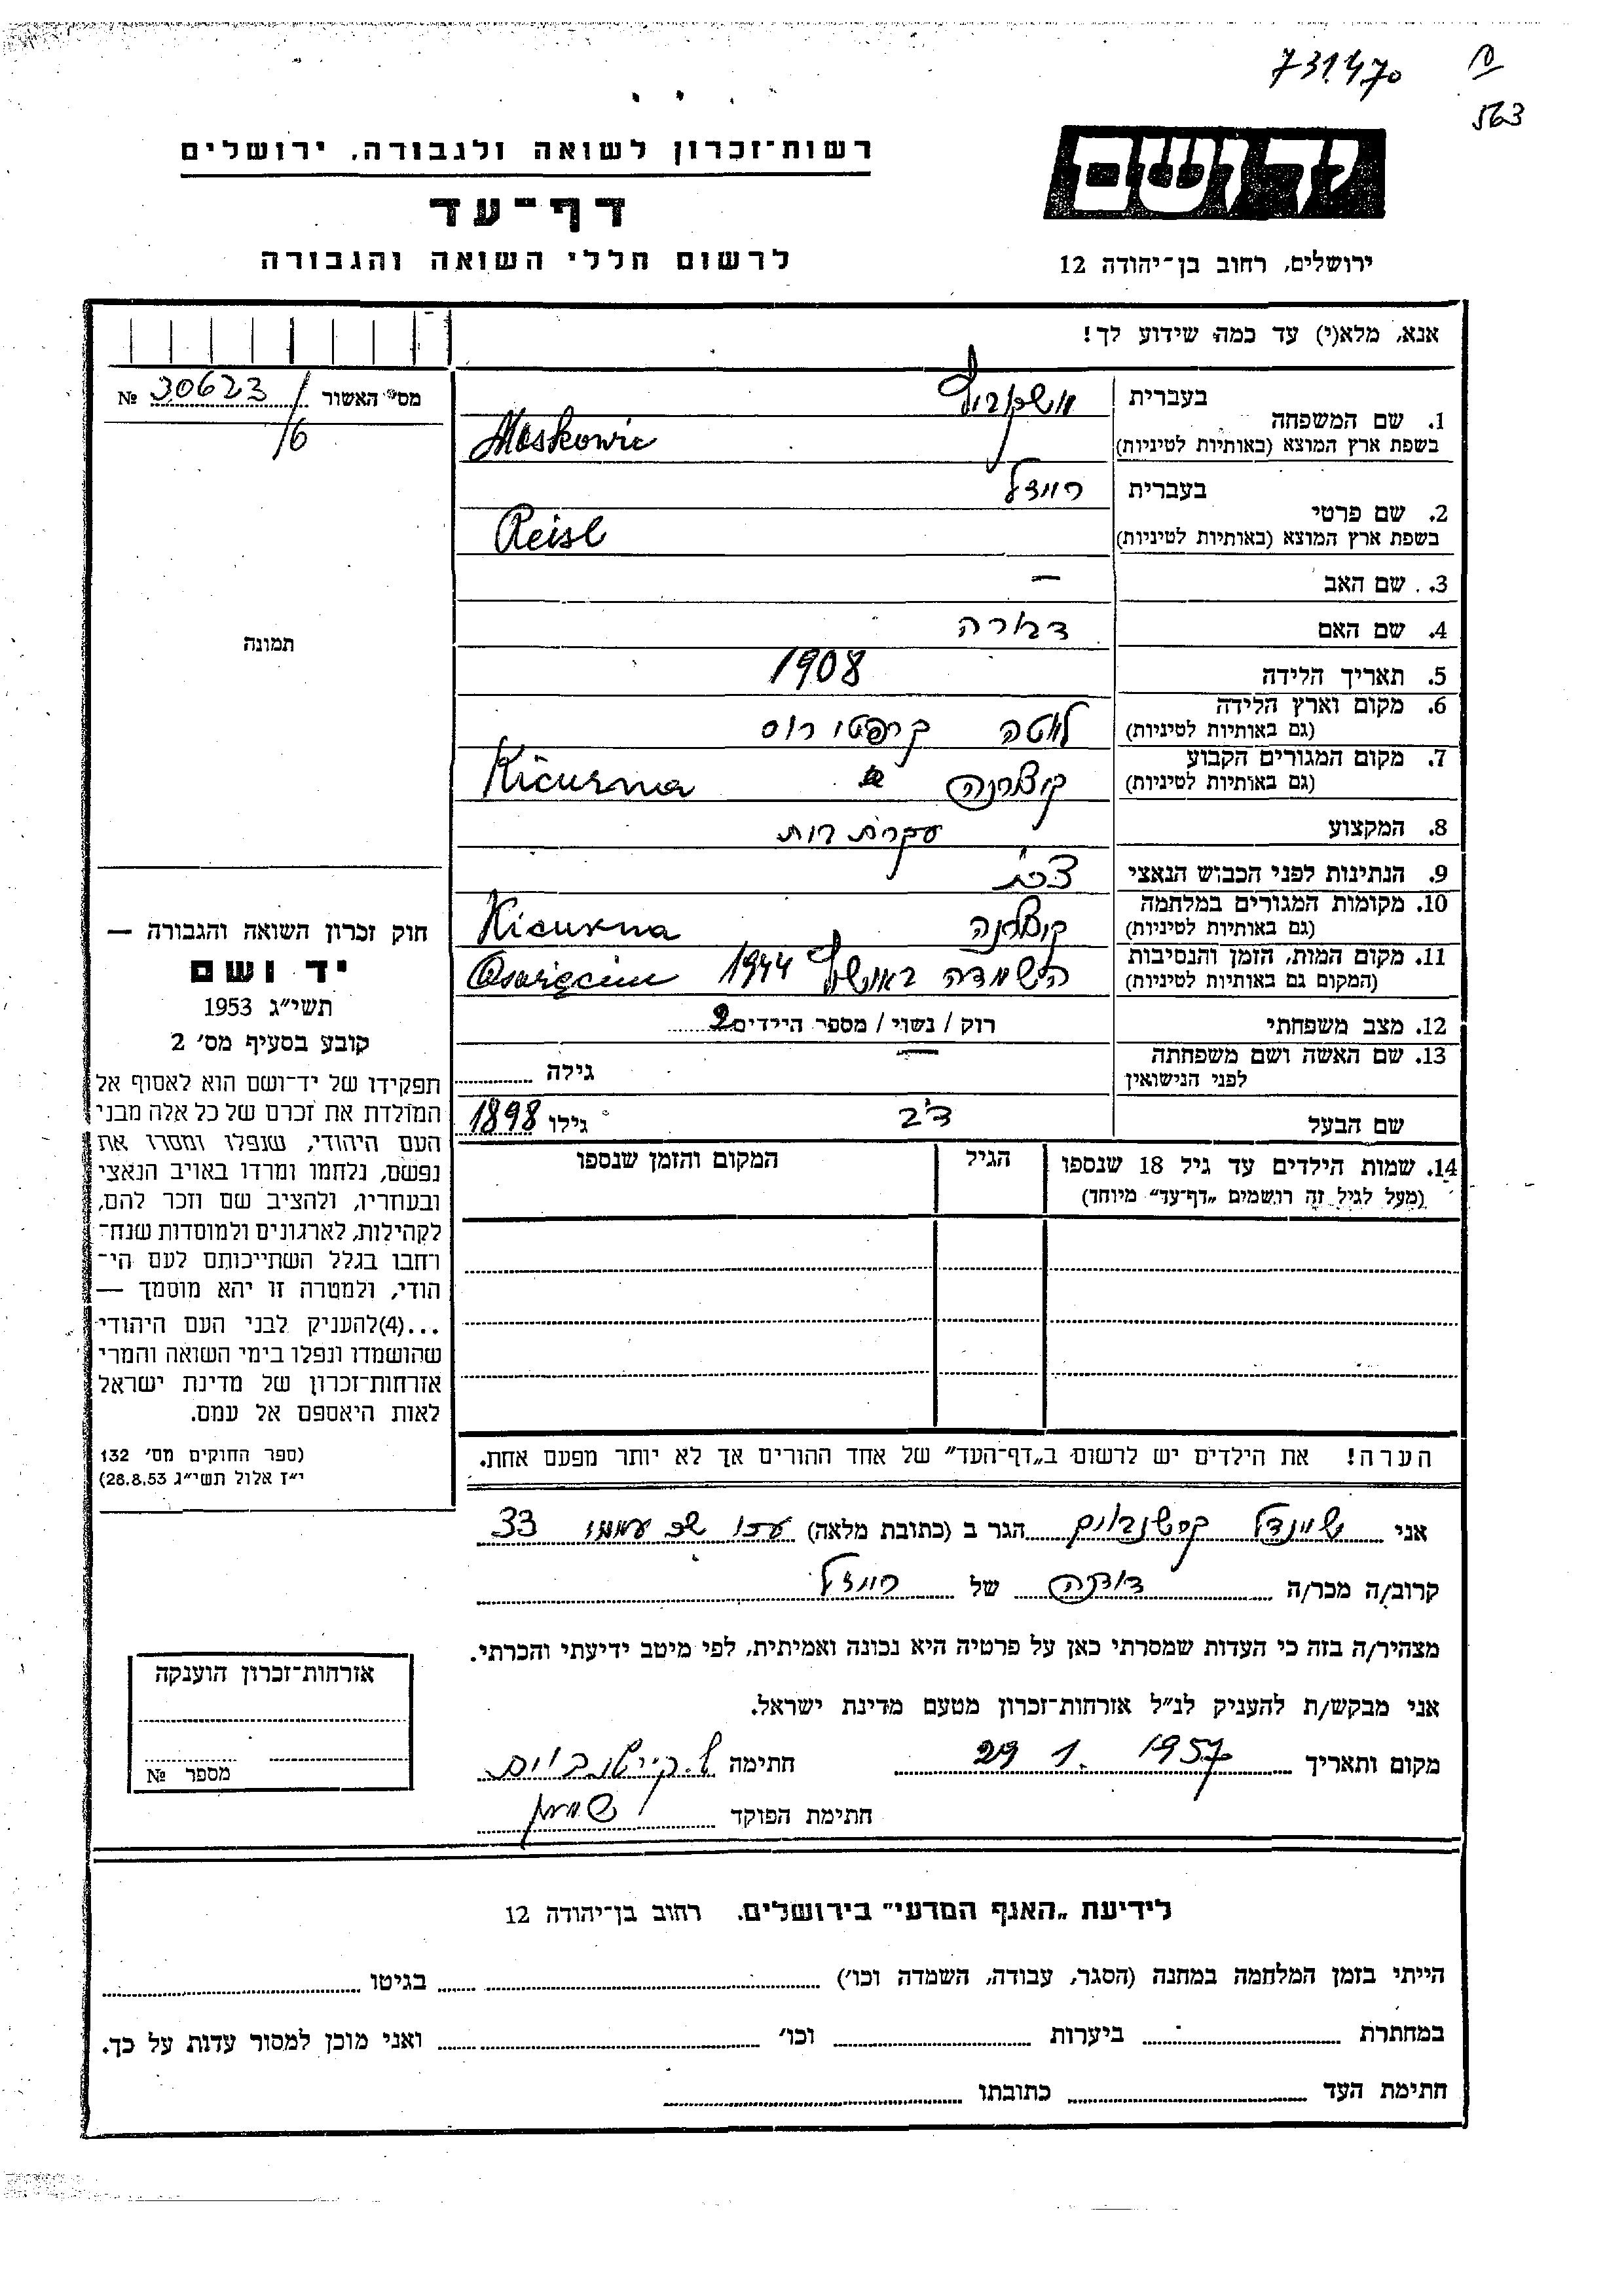 731470
563
יד ושם
ירושלים, רחוב בן־יהודה 12
רשות־זכרון לשואה ולגבורה, ירושלים
דף־עד
לרשום חללי השואה והגבורה
אנא, מלא(י) עד כמה שידוע לך!
מס' האשור 30623 №
/6
תמונה
1. שם המשפחה
בעברית מושקוביץ
בשפת ארץ המוצא (באותיות לטיניות) Moskowic
2. שם פרטי
בעברית רייזל
בשפת ארץ המוצא (באותיות לטיניות) Reisl
3. שם האב —
4. שם האם דבורה
5. תאריך הלידה 1908
6. מקום וארץ הלידה
(גם באותיות לטיניות) קרפטו רוס
7. מקום המגורים הקבוע
(גם באותיות לטיניות) Kicurna
8. המקצוע עקרת בית
9. הנתינות לפני הכבוש הנאצי צ'כית
10. מקומות המגורים במלחמה
(גם באותיות לטיניות) Kicurna
11. מקום המות, הזמן והנסיבות
(המקום גם באותיות לטיניות) הושמדה באושוויץ 1944
12. מצב משפחתי רוק / נשוי / מספר הילדים 2
13. שם האשה ושם משפחתה
לפני הנישואין — גילה
שם הבעל דב גילו 1898
14. שמות הילדים עד גיל 18 שנספו
(מעל לגיל זה רושמים „דף־עד” מיוחד)
הגיל
המקום והזמן שנספו
הערה! את הילדים יש לרשום ב„דף־העד” של אחד ההורים אך לא יותר מפעם אחת.
חוק זכרון השואה והגבורה —
יד ושם
תשי״ג 1953
קובע בסעיף מס' 2
תפקידו של יד־ושם הוא לאסוף אל
המולדת את זכרם של כל אלה מבני
העם היהודי, שנפלו ומסרו את
נפשם, נלחמו ומרדו באויב הנאצי
ובעוזריו, ולהציב שם וזכר להם,
לקהילות, לארגונים ולמוסדות שנח־
רחבו בגלל השתייכותם לעם הי־
הודי, ולמטרה זו יהא מוסמך —
...(4)להעניק לבני העם היהודי
שהושמדו ונפלו בימי השואה והמרי
אזרחות־זכרון של מדינת ישראל
לאות היאספם אל עמם.
(ספר החוקים מס' 132
י״ז אלול תשי״ג 28.8.53)
אני שיינדל הגר ב (כתובת מלאה) 33
קרוב/ה מכר/ה של רייזל
מצהיר/ה בזה כי העדות שמסרתי כאן על פרטיה היא נכונה ואמיתית, לפי מיטב ידיעתי והכרתי.
אני מבקש/ת להעניק לנ״ל אזרחות־זכרון מטעם מדינת ישראל.
מקום ותאריך 29 1. 1957 חתימה
חתימת הפוקד
אזרחות־זכרון הוענקה
מספר №
לידיעת „האגף המדעי” בירושלים. רחוב בן־יהודה 12
הייתי בזמן המלחמה במחנה (הסגר, עבודה, השמדה וכו') בגיטו
במחתרת ביערות וכו' ואני מוכן למסור עדות על כך.
חתימת העד כתובתו